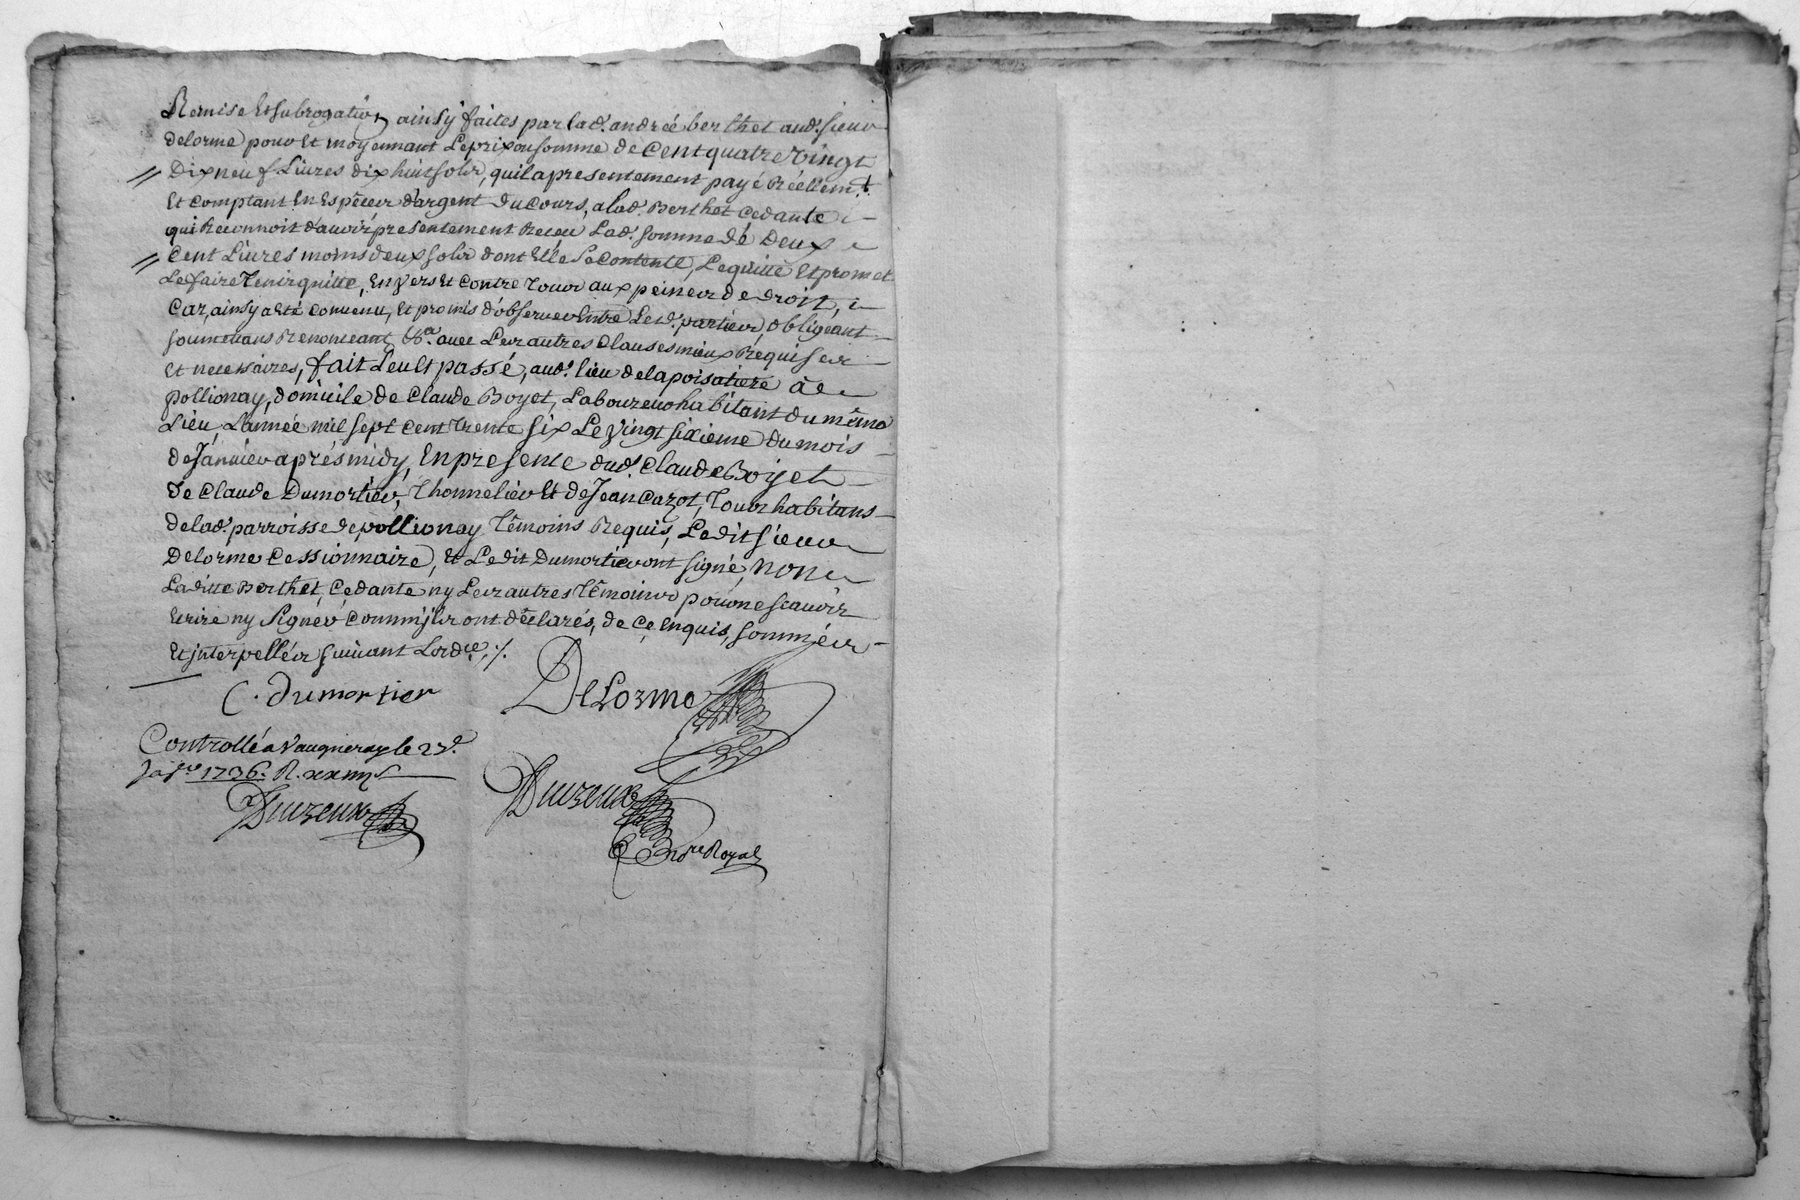 Remise Et subrogation ainsy faites par lad. andréé berthet aud. sieur
delorme pour Et moyennant Le prix ou somme de Cent quatre Vingt
Dix neuf Livres dix huit solz, quil a presentement payé Réellemt.
Et comptant En Espêces d'argent du Cours, a lad. Berthet Cedante
qui Reconnoit d'avoir presentement Receu Lad. somme de Deux
Cent Livres moins deux solz dont Elle Se Contente, Le quitte Et promet
Le faire Tenir quitte, Envers Et Contre Tous aux peines de droit,
Car, ainsy a eté convenu, Et promis d'observer Entre Lesd. parties obligeant
soumettans Renonceant &a. avec Les autres Clauses mieux Réquises
Et necessaires, fait Leu Et passé, aud. lieu de la poisatiere a
pollionay, domicile de Claude Boyet, Laboureur habitant du même
Lieu, L'année mil sept cent trente six Le Vingt sixieme du mois
de Janvier aprés midy, En presence dud. Claude Boyet
de Claude Dumortier, Thonnelier Et de Jean Cazot, Tous habitans
de lad. parroisse de pollionay Têmoins Requis, Ledit sieur
Delorme Cessionnaire, Et Ledit Dumortier ont signé, non
Laditte Berthet, Cedante ny Les autres Têmoins pour ne scavoir
Ecrire ny Signer Comm'jls ont déclarés, de Ce Enquis, sommés
Et jnterpellés suivant Lordce. ./.
C. Dumortier DeLorme
Controllé a Vaugneray le 27e.
1736. R.
Duzeux Duzeux
nore Royal